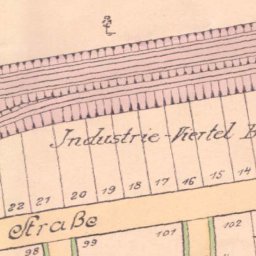 Industrie-Viertel B
22 21 20 19 18 17 16 15 14
Straße
98 99 101 102